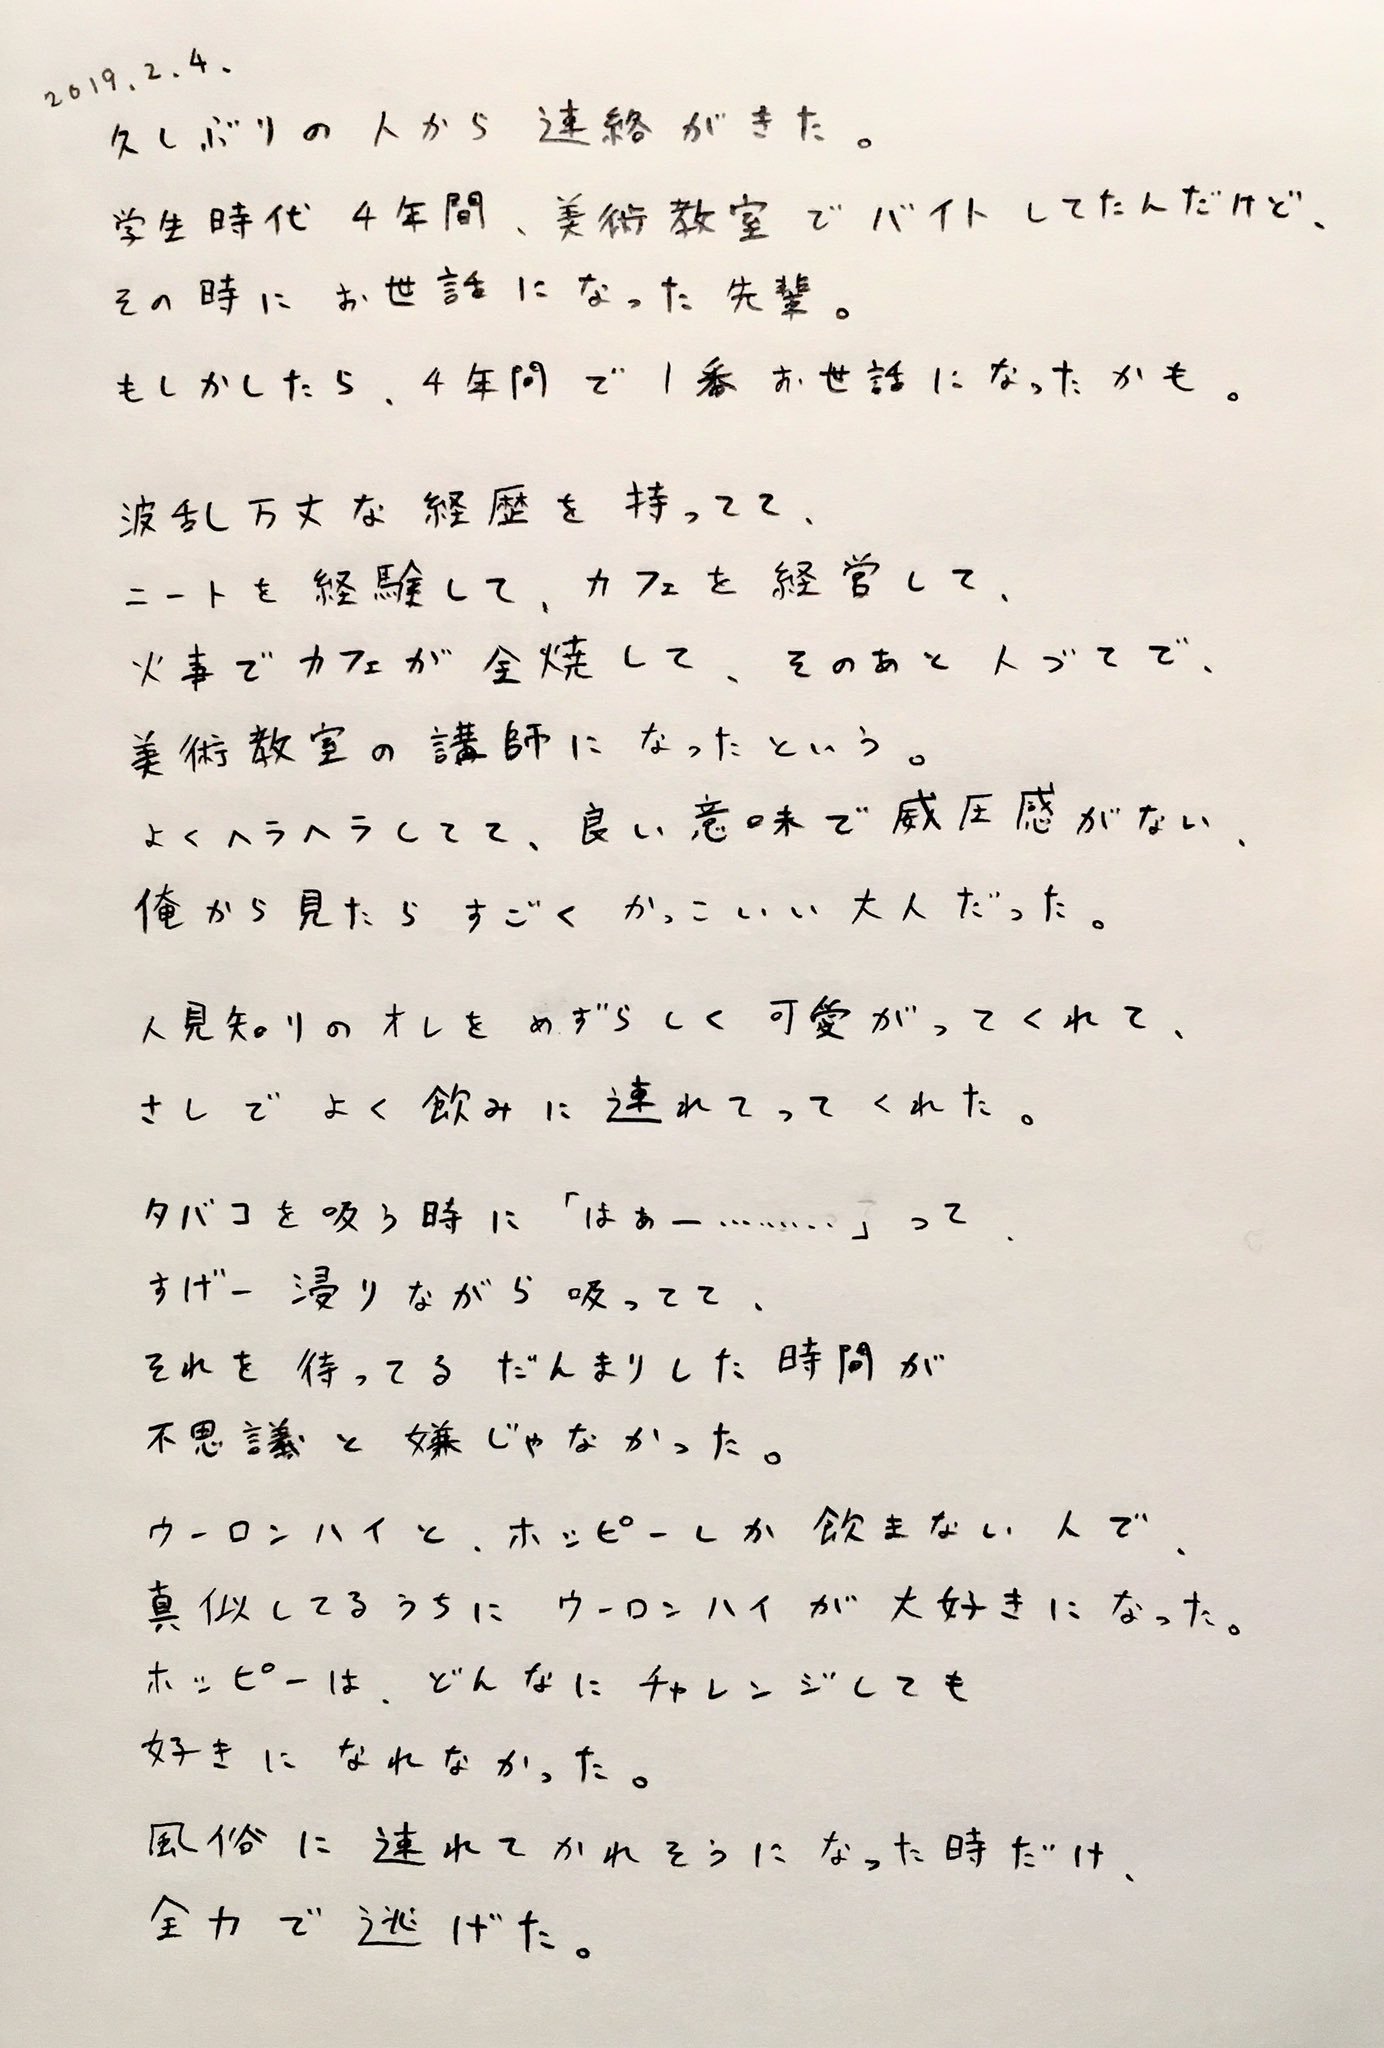 2019.2.4.
久しぶりの人から連絡がきた。
学生時代4年間、美術教室でバイトしてたんだけど、
その時にお世話になった先輩。
もしかしたら、4年間で1番お世話になったかも。
波乱万丈な経歴を持ってて、
ニートを経験して、カフェを経営して、
火事でカフェが全焼して、そのあと人づてで、
美術教室の講師になったという。
よくヘラヘラしてて、良い意味で威圧感がない、
俺から見たらすごくかっこいい大人だった。
人見知りのオレをめずらしく可愛がってくれて、
さしでよく飲みに連れてってくれた。
タバコを吸う時に「はぁー………」って、
すげー浸りながら吸ってて、
それを待ってるだんまりした時間が
不思議と嫌じゃなかった。
ウーロンハイと、ホッピーしか飲まない人で、
真似してるうちにウーロンハイが大好きになった。
ホッピーは、どんなにチャレンジしても
好きになれなかった。
風俗に連れてかれそうになった時だけ、
全力で逃げた。